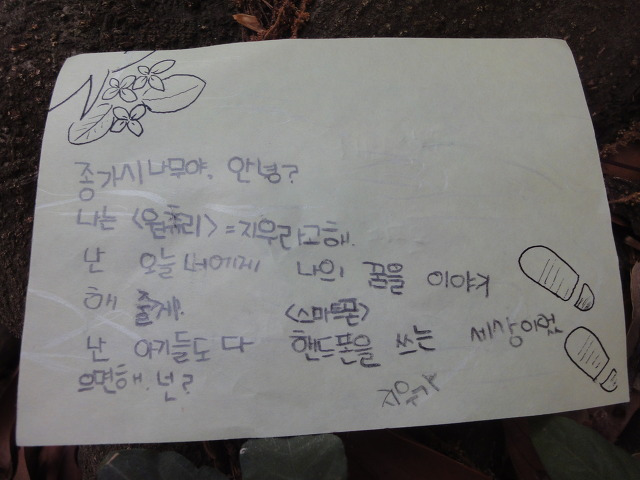 종가시나무야, 안녕?
나는 <원추리>=지우라고해.
난 오늘 너에게 나의 꿈을 이야기
해 줄게.
<스마트폰>
난 아기들도 다 핸드폰을 쓰는 세상이었
으면해. 넌?
지우가